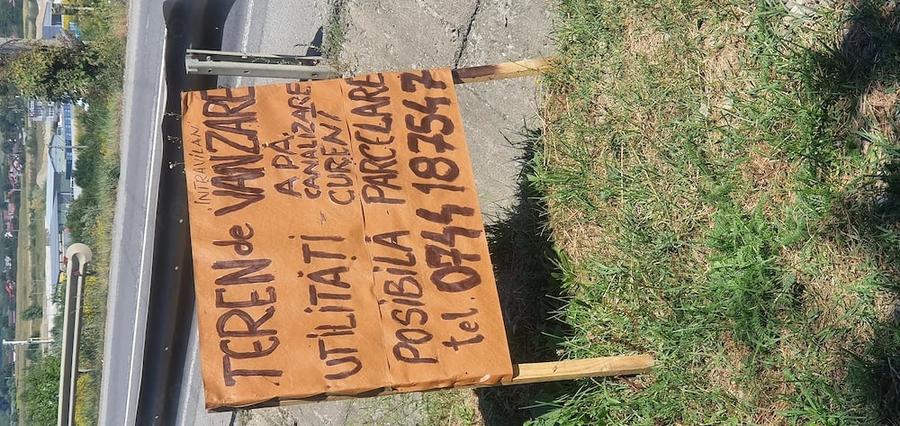 INTRAVILAN
TEREN de VANZARE
UTILITĂȚI APĂ,
CANALIZARE
CURENT
POSIBILĂ PARCELARE
tel. 0744 187547